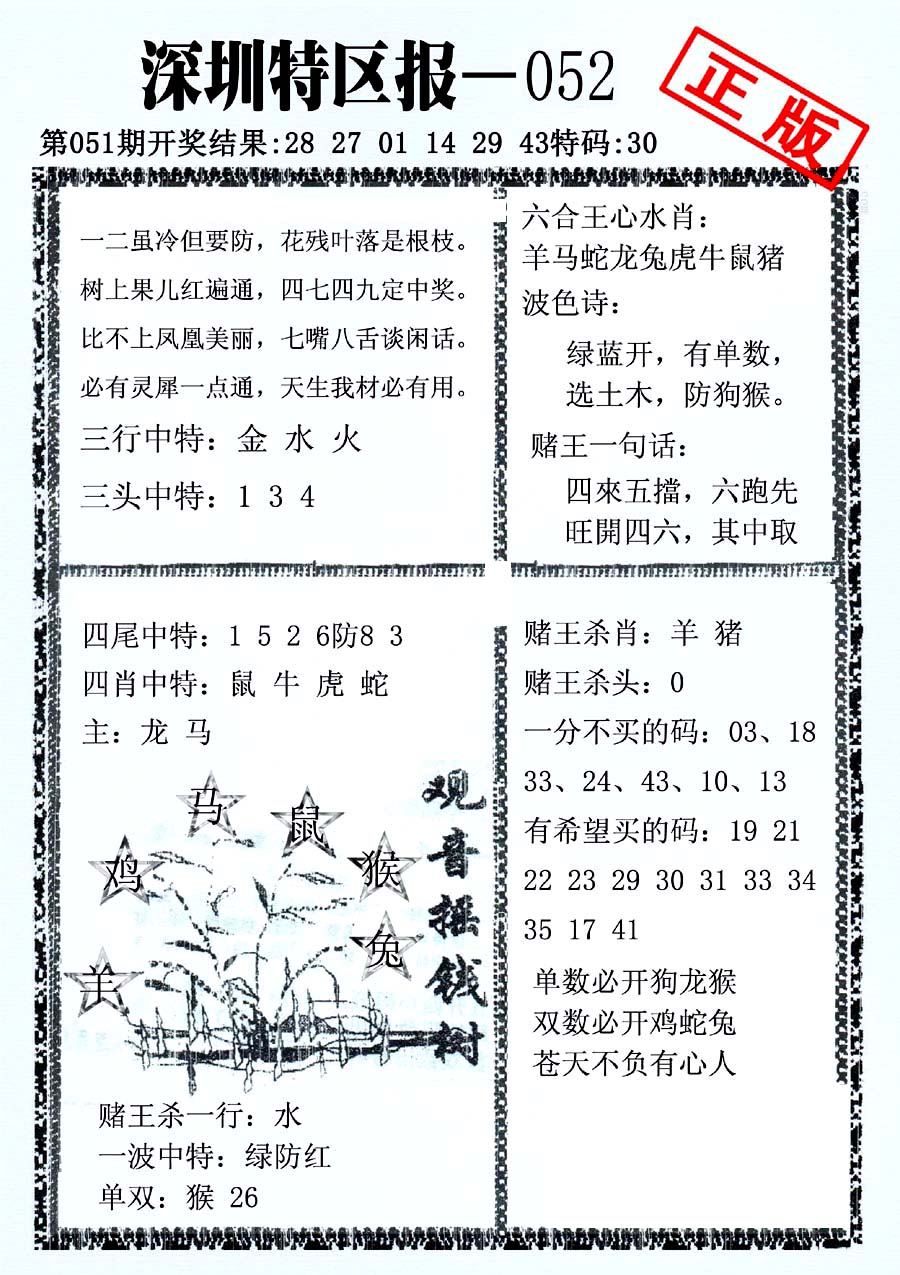 深圳特区报—052
正版
第051期开奖结果:28 27 01 14 29 43特码:30
一二虽冷但要防，花残叶落是根枝。
树上果儿红遍通，四七四九定中奖。
比不上凤凰美丽，七嘴八舌谈闲话。
必有灵犀一点通，天生我材必有用。
三行中特：金 水 火
三头中特：1 3 4
六合王心水肖：
羊马蛇龙兔虎牛鼠猪
波色诗：
绿蓝开，有单数，
选土木，防狗猴。
赌王一句话：
四來五擋，六跑先
旺開四六，其中取
四尾中特：1 5 2 6防8 3
四肖中特：鼠 牛 虎 蛇
主：龙 马
马
鼠
鸡
猴
兔
羊
观音摇钱树
赌王杀一行：水
一波中特：绿防红
单双：猴 26
赌王杀肖：羊 猪
赌王杀头：0
一分不买的码：03、18
33、24、43、10、13
有希望买的码：19 21
22 23 29 30 31 33 34
35 17 41
单数必开狗龙猴
双数必开鸡蛇兔
苍天不负有心人